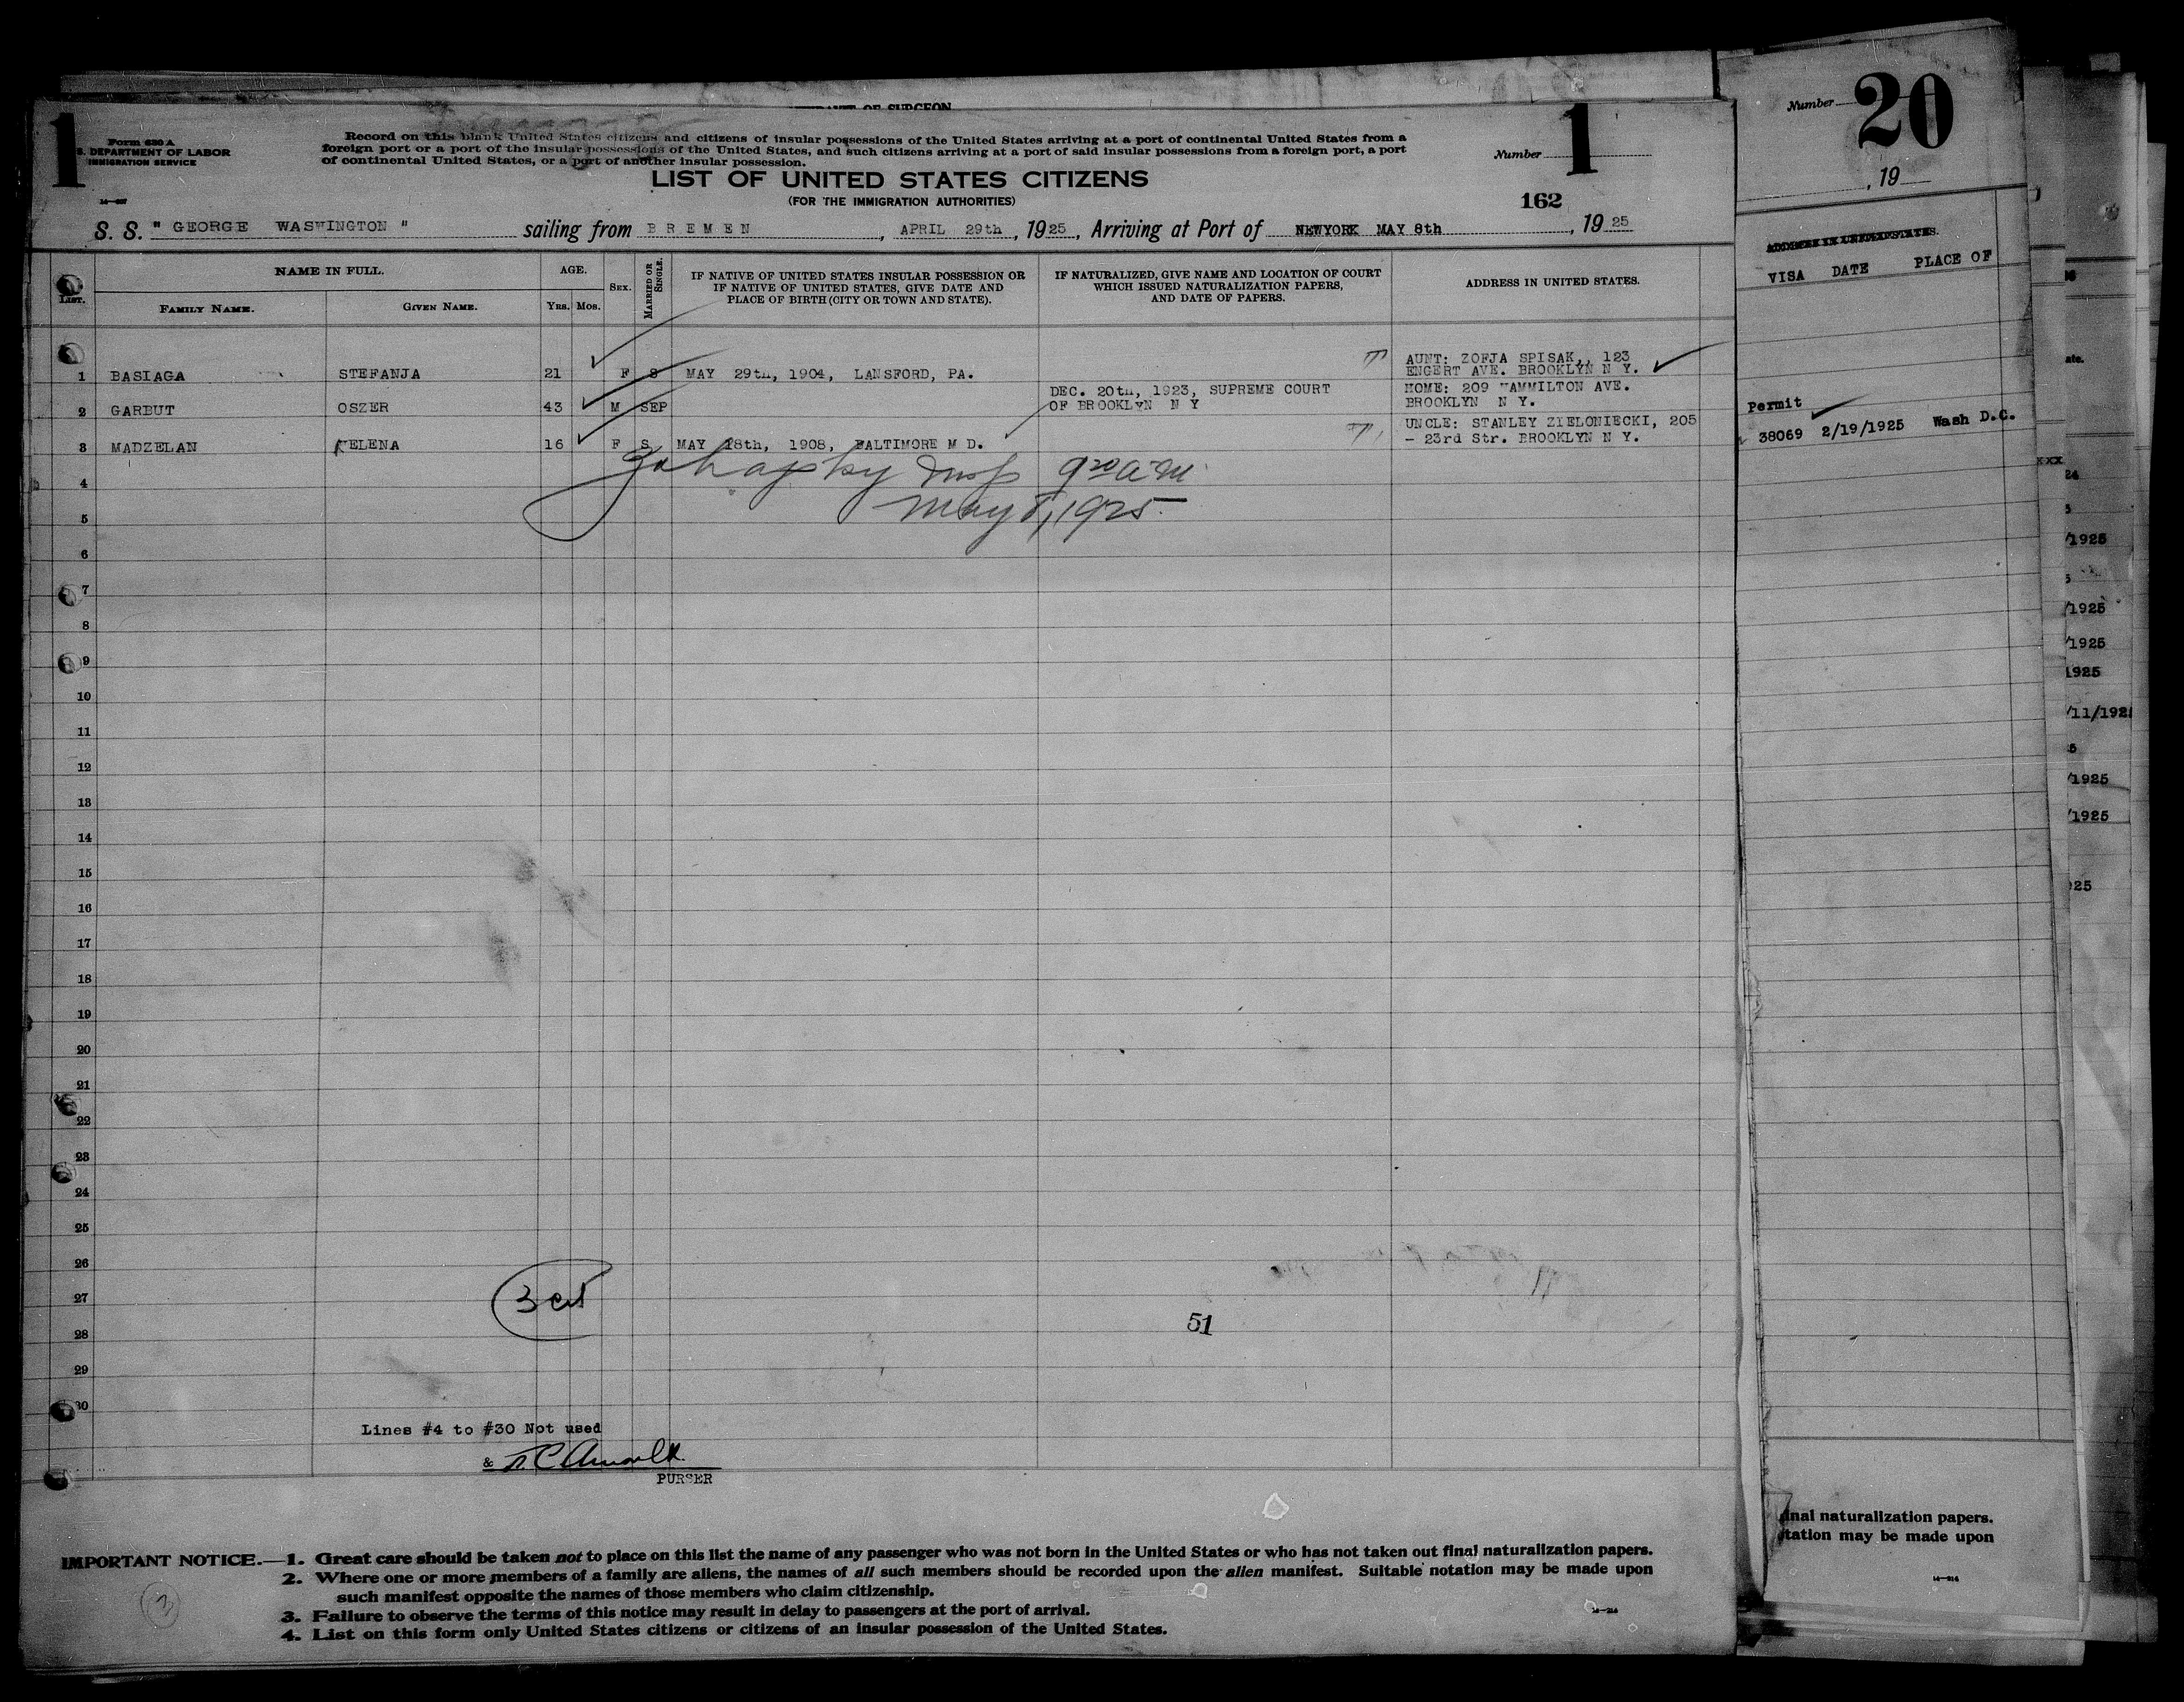 OF SURGEON
1
Form 630 A
S. DEPARTMENT OF LABOR
IMMIGRATION SERVICE
Record on this blank United States citizens and citizens of insular possessions of the United States arriving at a port of continental United States from a
foreign port or a port of the insular possessions of the United States, and such citizens arriving at a port of said insular possessions from a foreign port, a port
of continental United States, or a port of another insular possession.
Number 1
LIST OF UNITED STATES CITIZENS
(FOR THE IMMIGRATION AUTHORITIES)
162
S. S. " GEORGE WASHINGTON " sailing from BREMEN, APRIL 29th, 1925, Arriving at Port of NEWYORK MAY 8th, 1925
LIST.
NAME IN FULL.
FAMILY NAME. GIVEN NAME.
AGE.
YRS. MOS.
SEX.
MARRIED OR SINGLE.
IF NATIVE OF UNITED STATES INSULAR POSSESSION OR
IF NATIVE OF UNITED STATES, GIVE DATE AND
PLACE OF BIRTH (CITY OR TOWN AND STATE).
IF NATURALIZED, GIVE NAME AND LOCATION OF COURT
WHICH ISSUED NATURALIZATION PAPERS,
AND DATE OF PAPERS.
ADDRESS IN UNITED STATES.
1 BASIAGA STEFANJA 21 F S MAY 29th, 1904, LANSFORD, PA.
AUNT: ZOFJA SPISAK,, 123
ENGERT AVE. BROOKLYN N Y.
2 GARBUT OSZER 43 M SEP
DEC. 20th, 1923, SUPREME COURT
OF BROOKLYN N Y
HOME: 209 HAMMILTON AVE.
BROOKLYN N Y.
3 MADZELAN HELENA 16 F S MAY 18th, 1908, BALTIMORE M D.
UNCLE: STANLEY ZIELONIECKI, 205
- 23rd Str. BROOKLYN N Y.
Insp 9 20 a m
May 8, 1925
4
5
6
7
8
9
10
11
12
13
14
15
16
17
18
19
20
21
22
23
24
25
26
27
28
29
30
3 cit
51
Lines #4 to #30 Not used
&
PURSER
IMPORTANT NOTICE.—1. Great care should be taken not to place on this list the name of any passenger who was not born in the United States or who has not taken out final naturalization papers.
2. Where one or more members of a family are aliens, the names of all such members should be recorded upon the alien manifest. Suitable notation may be made upon
such manifest opposite the names of those members who claim citizenship.
3. Failure to observe the terms of this notice may result in delay to passengers at the port of arrival.
4. List on this form only United States citizens or citizens of an insular possession of the United States.
3
Number 20
, 19
VISA DATE PLACE OF
Permit
38069 2/19/1925 Wash D.C.
inal naturalization papers.
tation may be made upon
ate.
xxx
24
/1925
/1925
/1925
1925
/11/192
/1925
/1925
25